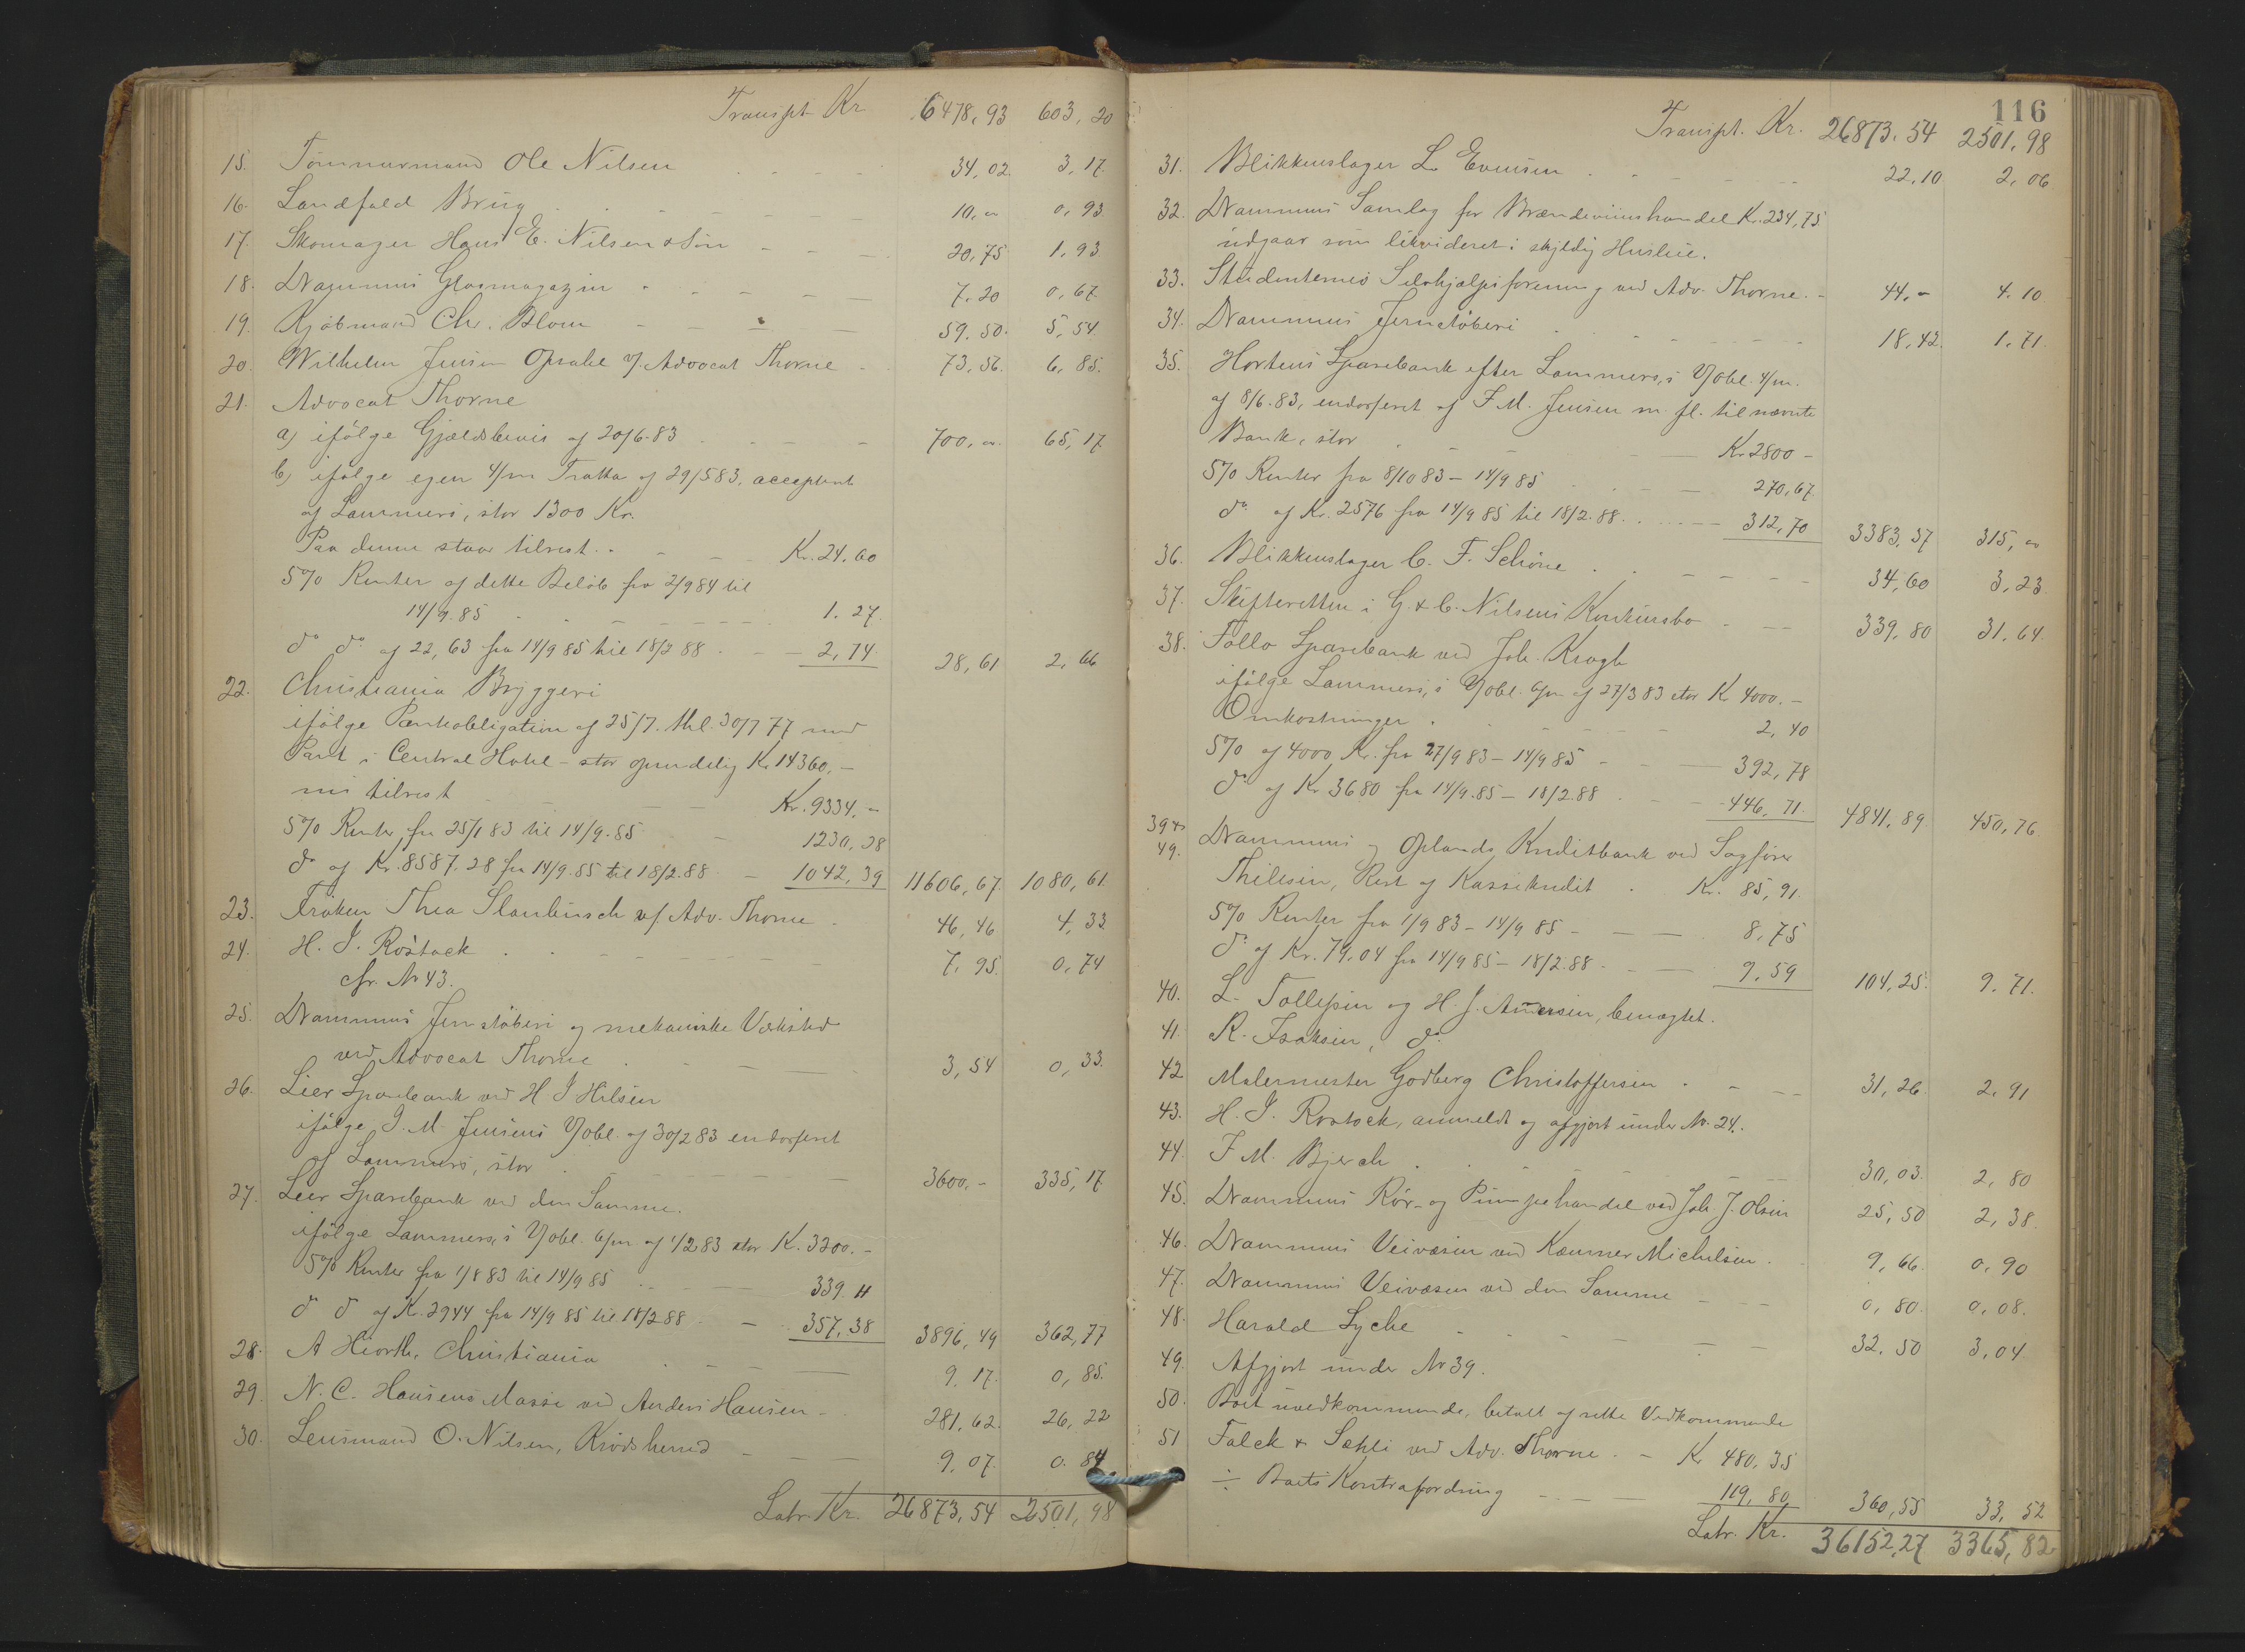 Transpt. Kr. 6478,93 603,20
15. Tømmermand Ole Nilsen 34,02 3,17
16. Landfald Brug 10,00 0,93
17. Skomager Hans E. Nilsen & Søn 20,75 1,93
18. Drammens Glasmagazin 7,20 0,67
19. Kjøbmand Chr. Blom 59.50 5,54
20. Wilhelm Jensen Opsahl v/ Advocat Thorne 73,56 6,85
21. Advocat Thorne
a) ifølge Gjældsbevis af 20/6.83 700,00 65,17
b) ifølge egen 4/m Tratta af 29/5 83, acceptert
af Lammers, stor 1300 Kr.
Paa denne staar tilrest. Kr. 24.60
5% Renter af dette Beløb fra 2/9 84 til
14/9.85 1.27
do do af 22,63 fra 14/9 85 til 18/2 88 2,74 28,61 2,66
22. Christiania Bryggeri
ifølge Panteobligation af 25/7. thl. 30/7 77 med
Pant i Central Hotel - stor oprindelig Kr. 14360,-
nu tilrest Kr. 9334,-
5% Renter fra 25/1 83 til 14/9.85 1230,28
do af Kr. 8587.28 fra 14/9.85 til 18/2.88 1042,39 11606,67 1080,61
23. Frøken Thea Slaubusch v/ Adv. Thorne 46,46 4,33
24. H. J. Rostock 7,95 0,74
cfr. Nr 43.
25. Drammens Jernstøberi og mekaniske Værksted
ved Advocat Thorne 3,54 0,33
26. Lier Sparebank ved H J Hilsen
ifølge J. M. Jensens Vobl. af 30/2 83 endosseret
af Lammers, stor 3600,- 335,17
27. Lier Sparebank ved den Samme.
ifølge Lammers's Vobl. 6/m af 1/2 83 stor K. 3200.-
5% Renter fra 1/8 83 til 14/9 85 339.11
do do af K. 2944 fra 14/9 85 til 18/2 88 357,38 3896,49 362,77
28. A Hiorth, Christiania 9,17 0,85
29. N. C. Hansens Masse ved Anders Hansen 281,62 26,22
30. Lensmand O. Nilsen, Krødsherred 9,07 0.84
Latr. Kr. 26873,54 2501,98
116
Transpt. Kr. 26873.54 2501,98
31. Blikkenslager L. Evensen 22,10 2,06
32. Drammens Samlag for Brændeviinshandel Kr. 234,75
udgaar som likvideret i skyldig Husleie.
33. Studenternes Selvhjælpsforening ved Adv. Thorne. 44,- 4.10
34. Drammens Jernstøberi 18,42 1.71
35. Hortens Sparebank efter Lammers's Vobl. 4/m.
af 8/6.83, endosseret af F. M. Jensen m. fl. til nævnte
Bank, stor Kr. 2800 -
5% Renter fra 8/10 83 - 14/9 85 270,67
do af Kr. 2576 fra 14/9 85 til 18/2.88 312,70 3383,37 315,00
36. Blikkenslager C. F. Schöne 34,60 3,23
37. Skifteretten i G. & C. Nilsens Konkursbo 339,80 31,64
38. Follo Sparebank ved Joh. Krogh
ifølge Lammers's Vobl. 6/m af 27/3 83 stor K 4000.-
Omkostninger 2,40
5% af 4000 Kr. fra 27/9 83 - 14/9 85 392,78
do af Kr 3680 fra 14/9.85 - 18/2.88 446,71 4841,89 450,76
39 &
49. Drammens og Oplands Kreditbank ved Sagfører
Thilesen, Rest af Kassekredit Kr. 85,91
5% Renter fra 1/9 83 - 14/9 85 8,75
do af Kr. 79.04 fra 14/9 85 - 18/2.88 9,59 104,25 9.71
40. L. Tollefsen og H. J. Andersen, benægtet.
41. R. Isaksen, do
42 Malermester Godberg Christoffersen 31,26 2,91
43. H. J. Rostock, anmeldt og afgjort under Nr. 24.
44. F M. Bjerch 30,03 2,80
45. Drammens Rør- og Pumpehandel ved Joh J. Olsen 25,50 2,38
46. Drammens Veivæsen ved Kæmner Michelsen 9,66 0,90
47. Drammens Veivæsen ved den Samme 0,80 0,08
48. Harald Lyche 32,50 3,04
49. Afgjort under Nr 39.
50. Boet uvedkommende, betalt af rette Vedkommende
51 Falck & Sæhli ved Adv. Thorne Kr 480,35
÷ Boets Kontrafordring 119,80 360,55 33,52
Latr. Kr. 36152,27 3365,82